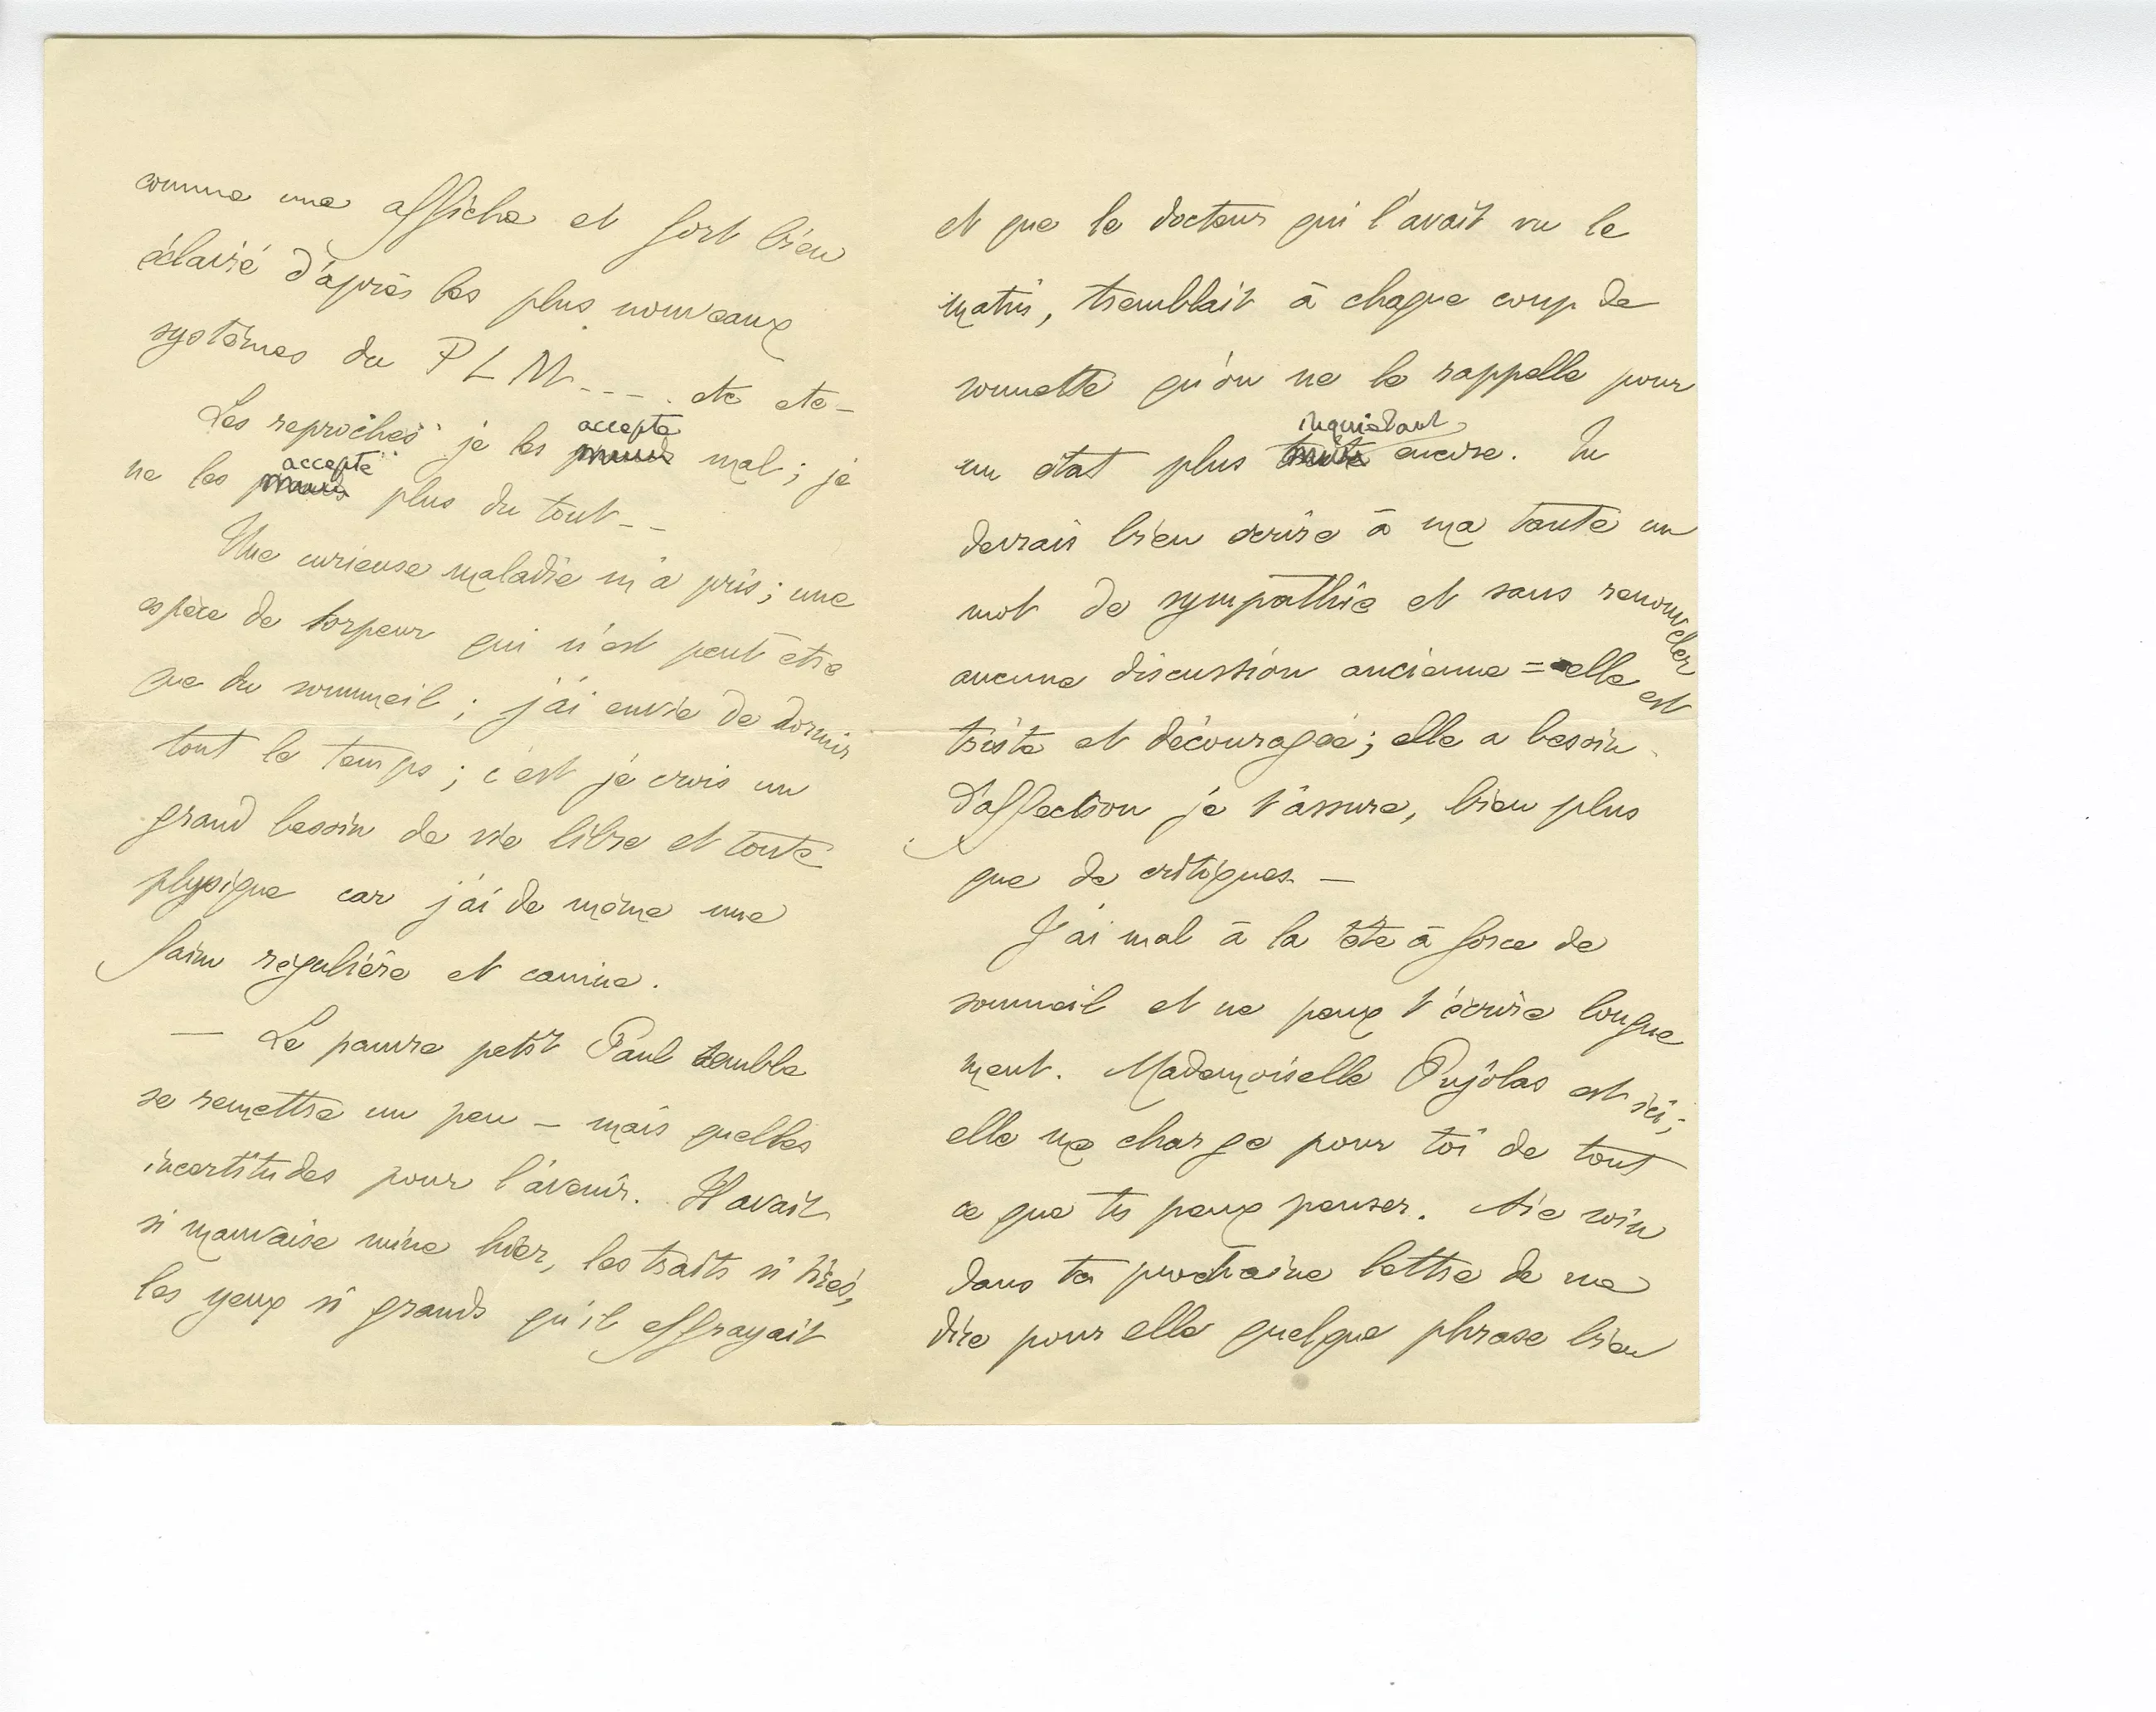 comme une affiche et fort bien
éclairé d'après les plus nouveaux
systèmes du P L M - - - . etc etc -
Les reproches je les accepte mal ; je
ne les accepte plus du tout - -
Une curieuse maladie m'a pris ; une
espèce de torpeur qui n'est peut être
que du sommeil ; j'ai envie de dormir
tout le temps ; c'est je crois un
grand besoin de vie libre et toute
physique car j'ai de même une
faim régulière et canine.
— Le pauvre petit Paul semble
se remettre un peu - mais quelles
incertitudes pour l'avenir. Il avait
si mauvaise mine hier, les traits si tirés,
les yeux si grands qu'il effrayait
et que le docteur qui l'avait vu le
matin, tremblait à chaque coup de
sonnette qu'on ne le rappelle pour
un état plus inquiétant encore. Tu
devrais bien écrire à ma tante un
mot de sympathie et sans renouveler
aucune discussion ancienne = elle est
triste et découragée ; elle a besoin
d'affection je t'assure, bien plus
que de critiques. —
J'ai mal à la tête à force de
sommeil et ne peux t'écrire longue
ment. Mademoiselle Pujolas est ici ;
elle me charge pour toi de tout
ce que tu peux penser. Aie soin
dans ta prochaine lettre de me
dire pour elle quelque phrase bien